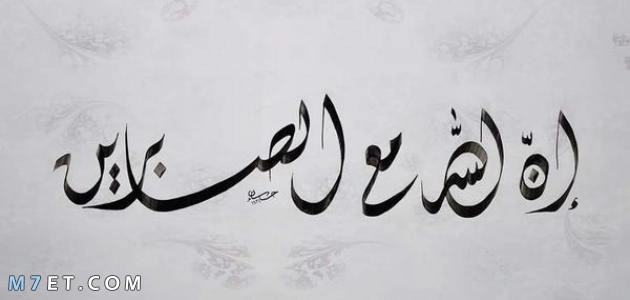 إنّ الله مع الصابرين
M7ET.COM